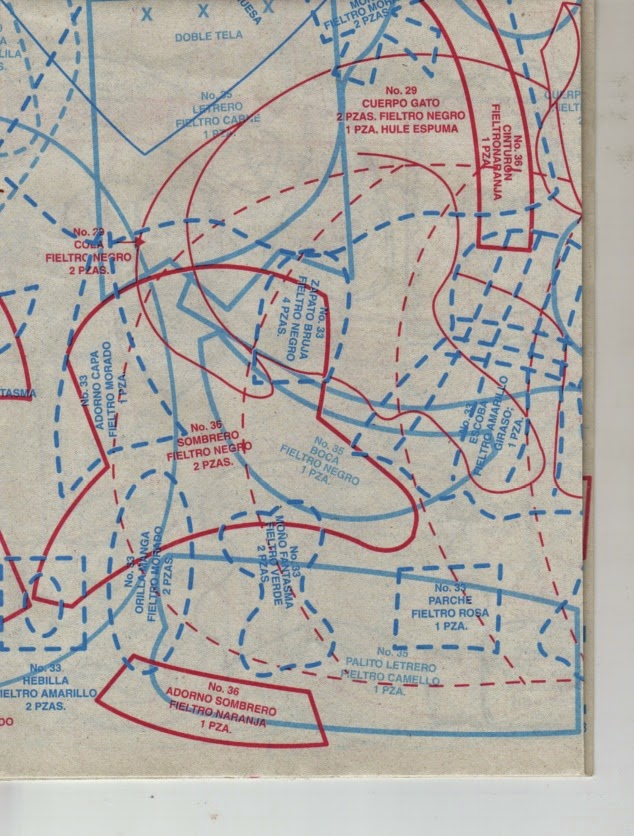 DOBLE TELA
No. 35
LETRERO
FIELTRO CAFE
1 PZA.
FIELTRO MORA
2 PZAS.
No. 29
CUERPO GATO
2 PZAS. FIELTRO NEGRO
1 PZA. HULE ESPUMA
No. 36
CINTURON
FIELTRONARANJA
1 PZA.
No. 29
COLA
FIELTRO NEGRO
2 PZAS.
No. 33
ZAPATO BRUJA
FIELTRO NEGRO
4 PZAS.
No. 33
ADORNO CAPA
FIELTRO MORADO
1 PZA.
NTASMA
No. 36
SOMBRERO
FIELTRO NEGRO
2 PZAS.
No. 35
BOCA
FIELTRO NEGRO
1 PZA.
No. 33
ESCOBA
FIELTRO AMARILLO
GIRASOL
1 PZA.
No. 33
ORILLA MANGA
FIELTRO MORADO
2 PZAS.
No. 33
MOÑO FANTASMA
FIELTRO VERDE
2 PZAS.
No. 33
PARCHE
FIELTRO ROSA
1 PZA.
No. 35
PALITO LETRERO
FIELTRO CAMELLO
1 PZA.
No. 33
HEBILLA
FIELTRO AMARILLO
2 PZAS.
No. 36
ADORNO SOMBRERO
FIELTRO NARANJA
1 PZA.